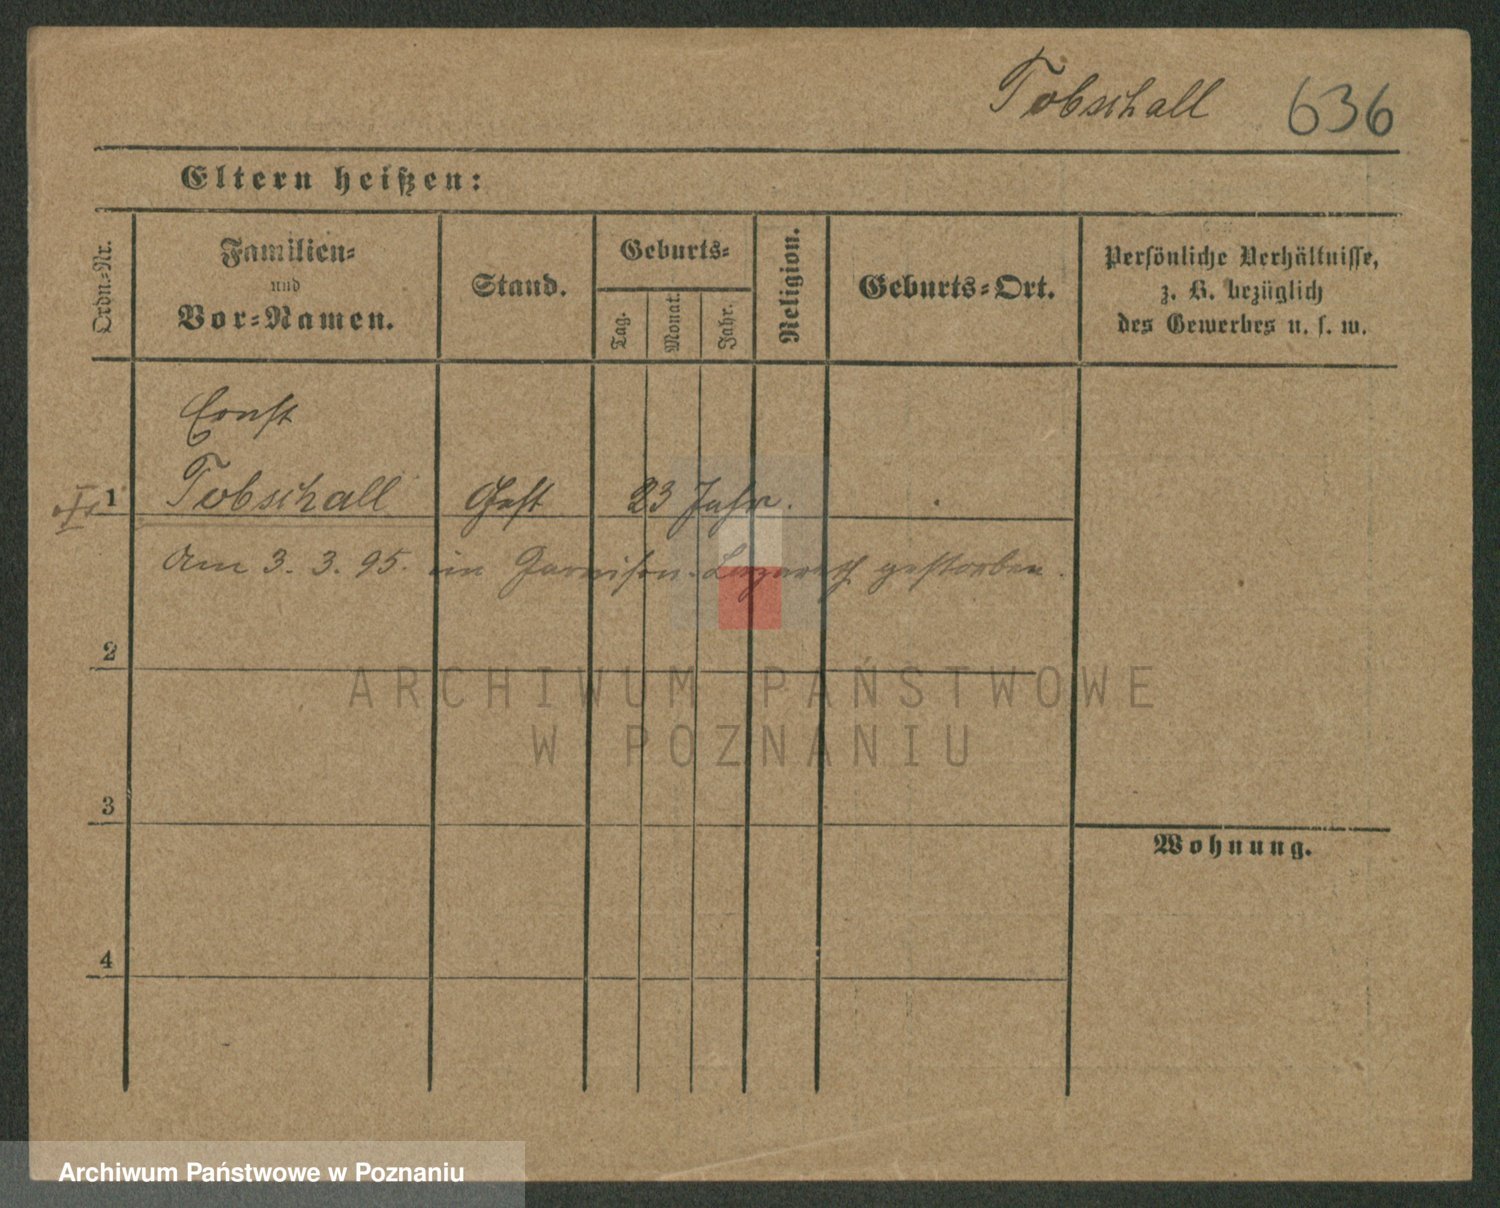 Tobschall 636
Eltern heißen:
Ordn.-Nr.
Familien-
und
Vor-Namen.
Stand.
Geburts-
Tag.
Monat.
Jahr.
Religion.
Geburts-Ort.
Persönliche Verhältnisse,
z. B. bezüglich
des Gewerbes u. s. w.
Ernst
1 Tobschall Gefr 23 Jahr.
Am 3. 3. 95. im Garnison-Lazareth gestorben.
2
ARCHIWUM PAŃSTWOWE
W POZNANIU
3
Wohnung.
4
Archiwum Państwowe w Poznaniu